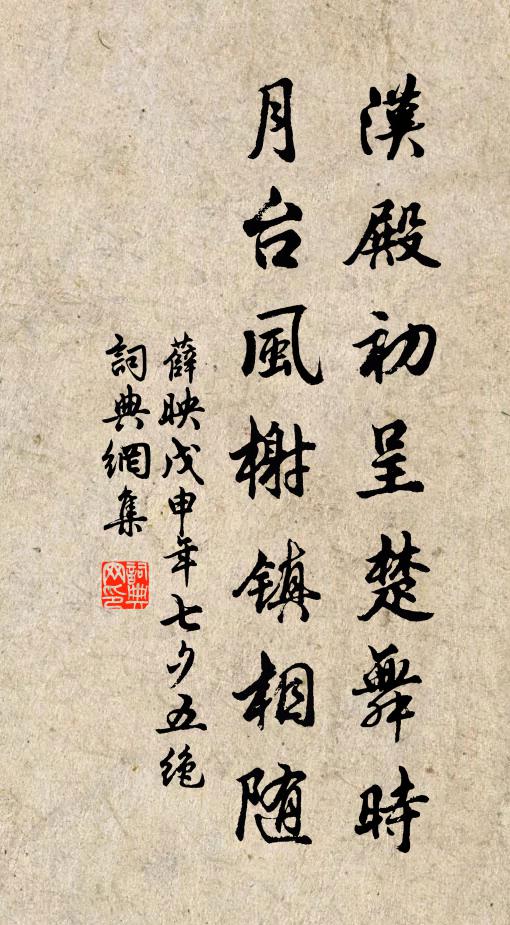 漢殿初呈楚舞時
月台風榭镇相随
薛映戊申年七夕五绝
詞典網集
詞典网印